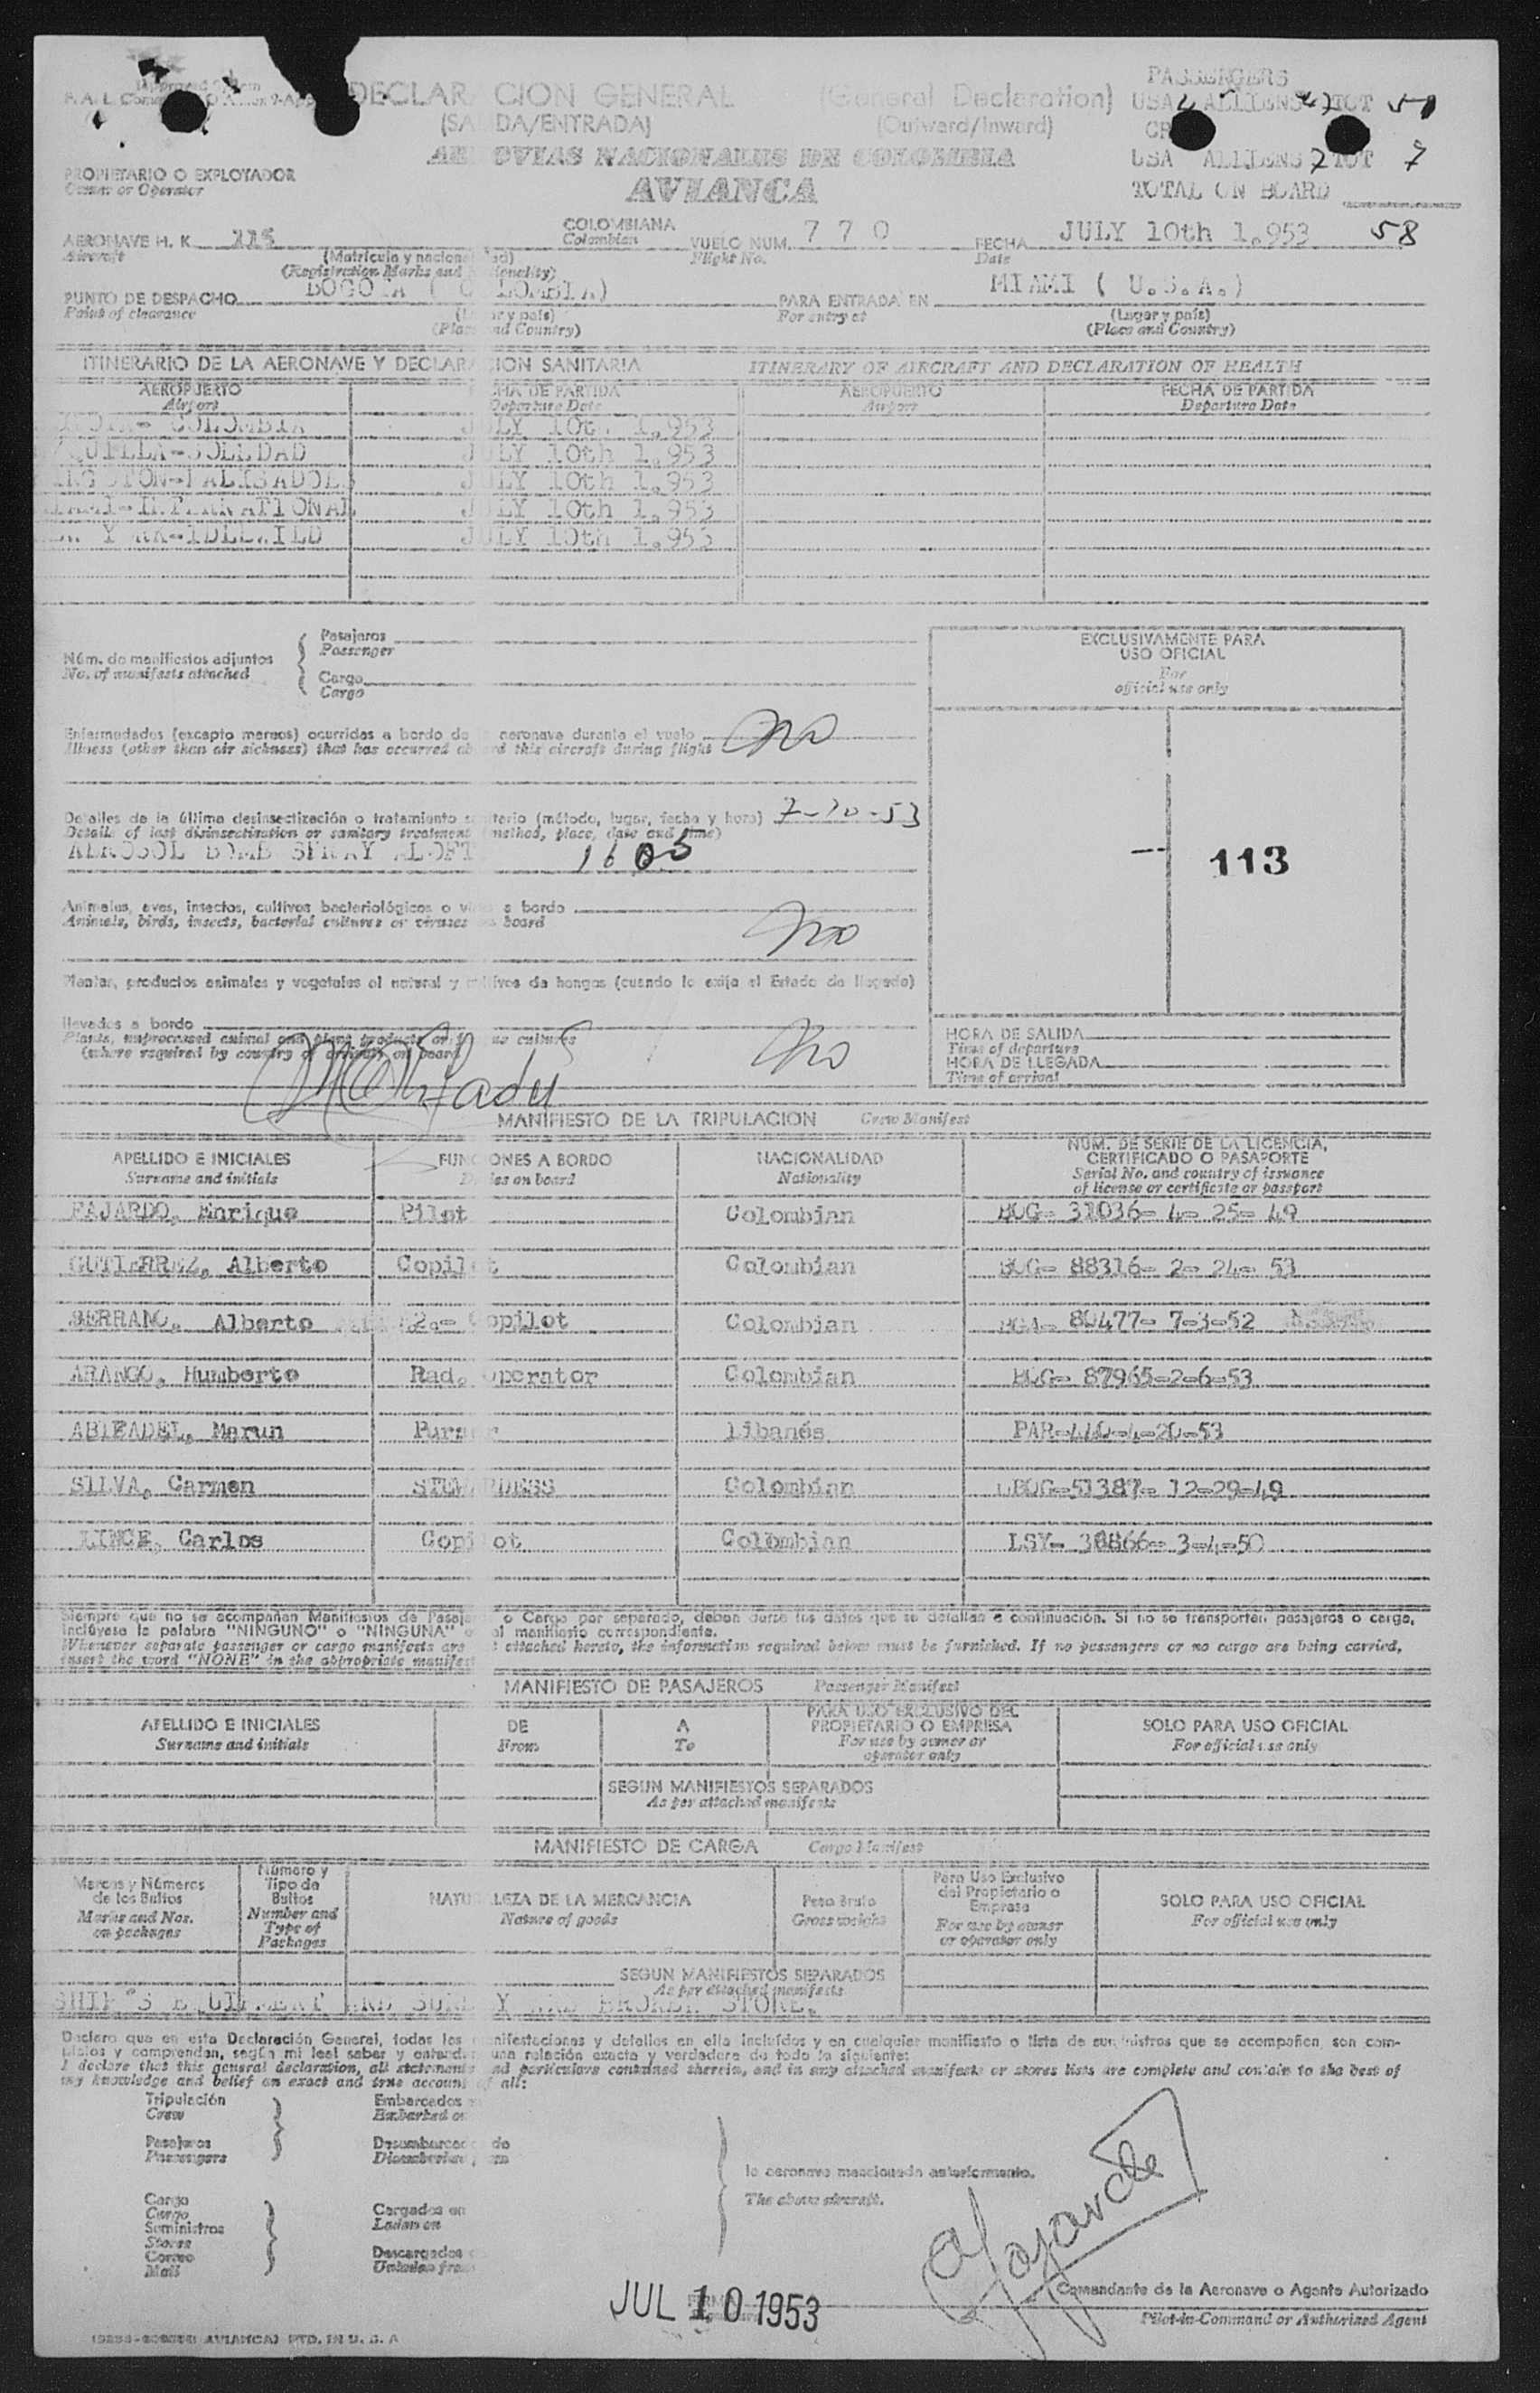 DECLARACION GENERAL (General Declaration)
(SALIDA/ENTRADA) (Outward/Inward)
AEROVIAS NACIONALES DE COLOMBIA
AVIANCA
PASSENGERS
USA ALLIENS TOT 51
USA ALLIENS 7 TOT 7
TOTAL ON BOARD
58
PROPIETARIO O EXPLOTADOR
Owner or Operator
AERONAVE H. K. COLOMBIANA VUELO NUM. 7 7 0 FECHA JULY 10th 1.953
Aircraft Colombian Flight No. Date
(Matrícula y nacionalidad)
(Registration Marks and Nationality)
PUNTO DE DESPACHO BOGOTA ( COLOMBIA) PARA ENTRADA EN MIAMI ( U.S.A.)
Point of clearance (Lugar y país) For entry at (Lugar y país)
(Place and Country) (Place and Country)
ITINERARIO DE LA AERONAVE Y DECLARACION SANITARIA ITINERARY OF AIRCRAFT AND DECLARATION OF HEALTH
AEROPUERTO FECHA DE PARTIDA AEROPUERTO FECHA DE PARTIDA
Airport Departure Date Airport Departure Date
COLOMBIA JULY 10th 1.953
QUILLA-SOLEDAD JULY 10th 1.953
INGSTON-PALISADOES JULY 10th 1.953
IAMI-INTERNATIONAL JULY 10th 1.953
EW YORK-IDLEWILD JULY 10th 1.953
Núm. de manifiestos adjuntos
No. of manifests attached
Pasajeros
Passenger
Cargo
Cargo
EXCLUSIVAMENTE PARA
USO OFICIAL
For
official use only
Enfermedades (excepto mareos) ocurridas a bordo de la aeronave durante el vuelo no
Illness (other than air sickness) that has occurred aboard this aircraft during flight
Detalles de la última desinsectización o tratamiento sanitario (método, lugar, fecha y hora) 7-10-53
Details of last disinsectization or sanitary treatment (method, place, date and time)
AEROSOL BOMB SPRAY ALOFT 1605
113
Animales, aves, insectos, cultivos bacteriológicos o virus a bordo
Animals, birds, insects, bacterial cultures or viruses on board
no
Plantas, productos animales y vegetales al natural y cultivos de hongos (cuando lo exija el Estado de llegada)
llevados a bordo
Plants, unprocessed animal and plant products or fungus cultures
(where required by country of arrival) on board
no
HORA DE SALIDA
Time of departure
HORA DE LLEGADA
Time of arrival
MANIFIESTO DE LA TRIPULACION Crew Manifest
APELLIDO E INICIALES FUNCIONES A BORDO NACIONALIDAD NUM. DE SERIE DE LA LICENCIA, CERTIFICADO O PASAPORTE
Surname and initials Duties on board Nationality Serial No. and country of issuance of license or certificate or passport
FAJARDO, Enrique Pilot Colombian BOG- 31036- 4- 25- 49
GUTIERREZ, Alberto Copilot Colombian BOG- 88316- 2- 24- 53
SERRANO, Alberto 2.- Copilot Colombian 80477- 7-3-52
ARANGO, Humberto Rad. Operator Colombian BOG- 87965-2-6-53
ABIFADEL, Marun Purser Libanés PAR-440-4-20-53
SILVA, Carmen STEWARDESS Colombian BOG-51387- 12-29-49
LINCE, Carlos Copilot Colombian LSY- 30866- 3-4-50
Siempre que no se acompañen Manifiestos de Pasajeros o Cargo por separado, deben darse los datos que se detallan a continuación. Si no se transportan pasajeros o carga,
inclúyase la palabra "NINGUNO" o "NINGUNA" en el manifiesto correspondiente.
Whenever separate passenger or cargo manifests are not attached hereto, the information required below must be furnished. If no passengers or no cargo are being carried,
insert the word "NONE" in the appropriate manifest
MANIFIESTO DE PASAJEROS Passenger Manifest
APELLIDO E INICIALES DE A PARA USO EXCLUSIVO DEL PROPIETARIO O EMPRESA SOLO PARA USO OFICIAL
Surname and initials From To For use by owner or operator only For official use only
SEGUN MANIFIESTOS SEPARADOS
As per attached manifests
MANIFIESTO DE CARGA Cargo Manifest
Marcas y Números de los Bultos Número y Tipo de Bultos NATURALEZA DE LA MERCANCIA Peso Bruto Para Uso Exclusivo del Propietario o Empresa SOLO PARA USO OFICIAL
Marks and Nos. on packages Number and Type of Packages Nature of goods Gross weight For use by owner or operator only For official use only
SEGUN MANIFIESTOS SEPARADOS
As per attached manifests
SHIP'S EQUIPMENT AND SUNDRY AND BROKEN STORE.
Declaro que en esta Declaración General, todas las manifestaciones y detalles en ella incluídos y en cualquier manifiesto o lista de suministros que se acompañen, son com-
pletos y comprenden, según mi leal saber y entender, una relación exacta y verdadera de todo lo siguiente:
I declare that this general declaration, all statements and particulars contained therein, and in any attached manifests or stores lists are complete and contain to the best of
my knowledge and belief an exact and true account of all:
Tripulación Embarcados en
Crew Embarked on
Pasajeros Desembarcados de
Passengers Disembarked from
la aeronave mencionada anteriormente.
The above aircraft.
Cargo
Cargo Cargados en
Suministros Laden on
Stores
Correo Descargados
Mail Unladen from
JUL 10 1953
Comandante de la Aeronave o Agente Autorizado
Pilot-in-Command or Authorized Agent
AVIANCA) PTD. IN U. S. A